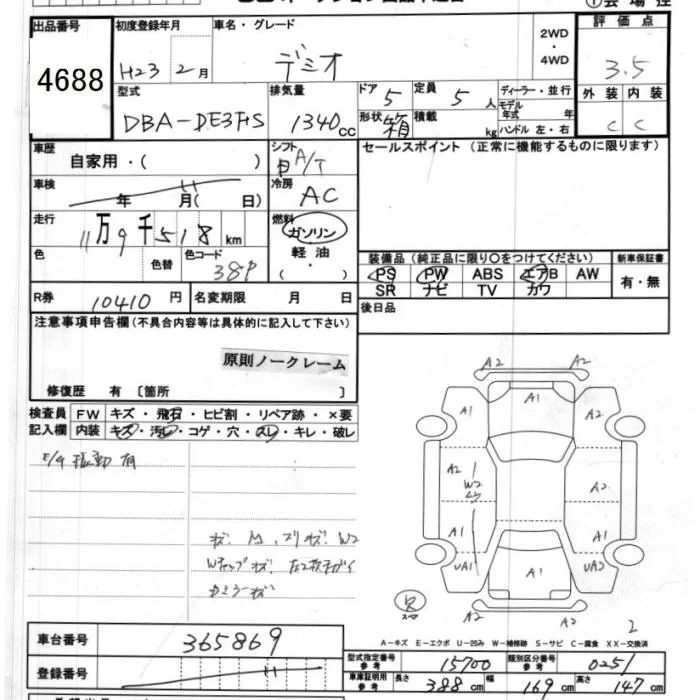 出品番号
4688
初度登録年月
H23 2月
車名・グレード
デミオ
2WD
・
4WD
評価点
3.5
型式
DBA-DE3FS
排気量
1340cc
ドア 5
定員 5人
形状 箱
積載 kg
ディーラー・並行
モデル年式 年
ハンドル 左・右
外装 内装
C C
車歴
自家用・( )
シフト
A/T
セールスポイント (正常に機能するものに限ります)
車検
年 月( 日)
冷房
AC
走行
11万9千518km
燃料
ガソリン
軽油
( ・ )
色
色替
色コード
38P
装備品 (純正品に限り〇をつけてください)
新車保証書
PS PW ABS エアB AW
有・無
SR ナビ TV カワ
R券 10410円
名変期限 月 日
後日品
注意事項申告欄 (不具合内容等は具体的に記入して下さい)
原則ノークレーム
修復歴 有 〔箇所 〕
検査員
記入欄
FW キズ・飛石・ヒビ割・リペア跡・×要
内装 キズ・汚レ・コゲ・穴・スレ・キレ・破レ
E/G 振動 有
A2 A2
A1 A1 A2
A2 W2 A2
A1 A1
UA1 A1 UA2
A2 A2
スペア
2
A-キズ E-エクボ U-凹み W-補修跡 S-サビ C-腐食 XX-交換済
車台番号
365869
登録番号
型式指定番号 参考
15700
類別区分番号 参考
0251
車庫証明用 参考
長さ 388cm
幅 169cm
高さ 147cm